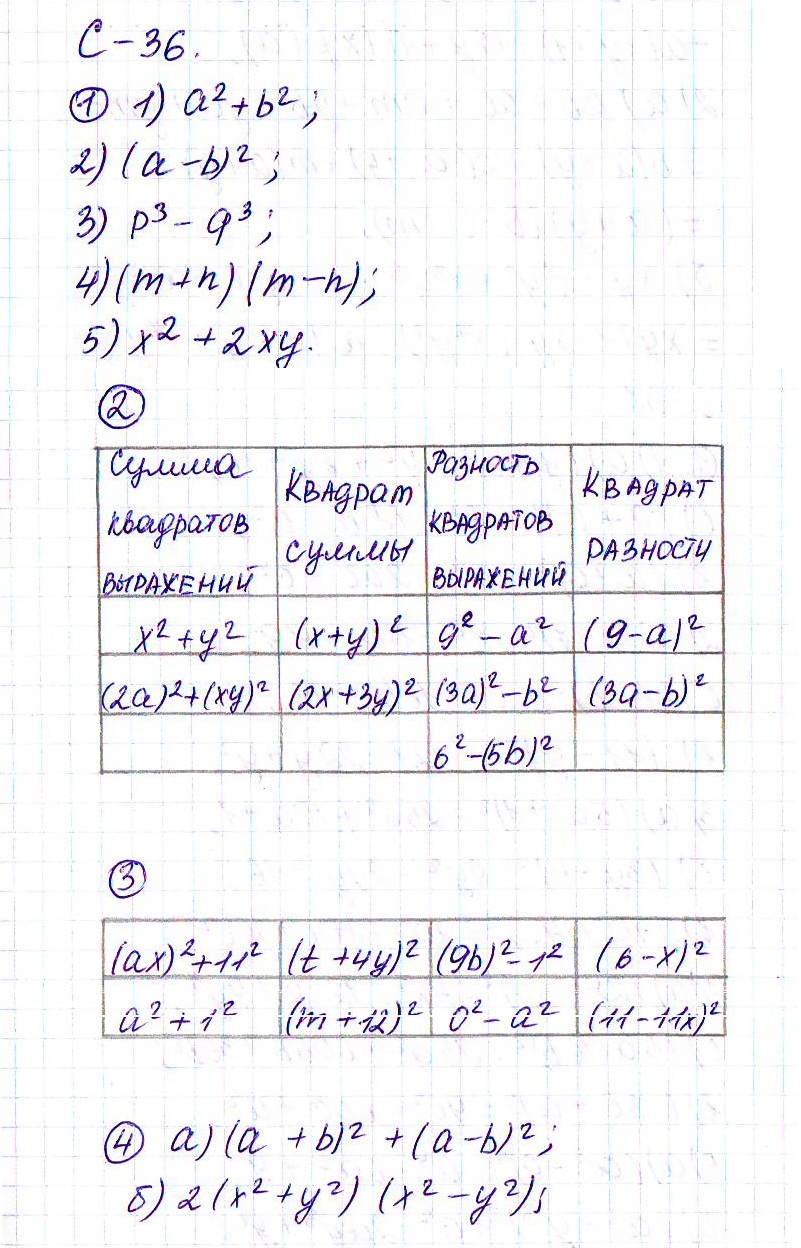 С-36.
① 1) a²+b²;
2) (a-b)²;
3) p³-q³;
4) (m+n) (m-n);
5) x²+2xy.
②
Сумма квадратов выражений | Квадрат суммы | Разность квадратов выражений | Квадрат разности
x²+y² | (x+y)² | 9²-a² | (9-a)²
(2a)²+(xy)² | (2x+3y)² | (3a)²-b² | (3a-b)²
6²-(5b)²
③
(ax)²+11² | (t+4y)² | (9b)²-1² | (6-x)²
a²+1² | (m+12)² | 0²-a² | (11-11x)²
④ а) (a+b)²+(a-b)²;
б) 2(x²+y²) (x²-y²);